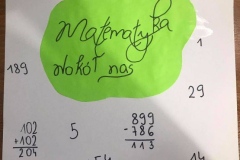 Matematyka
wokół nas
1
189
29
102
+102
204
5
899
-786
113
14